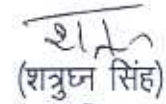 (शत्रुघ्न सिंह)